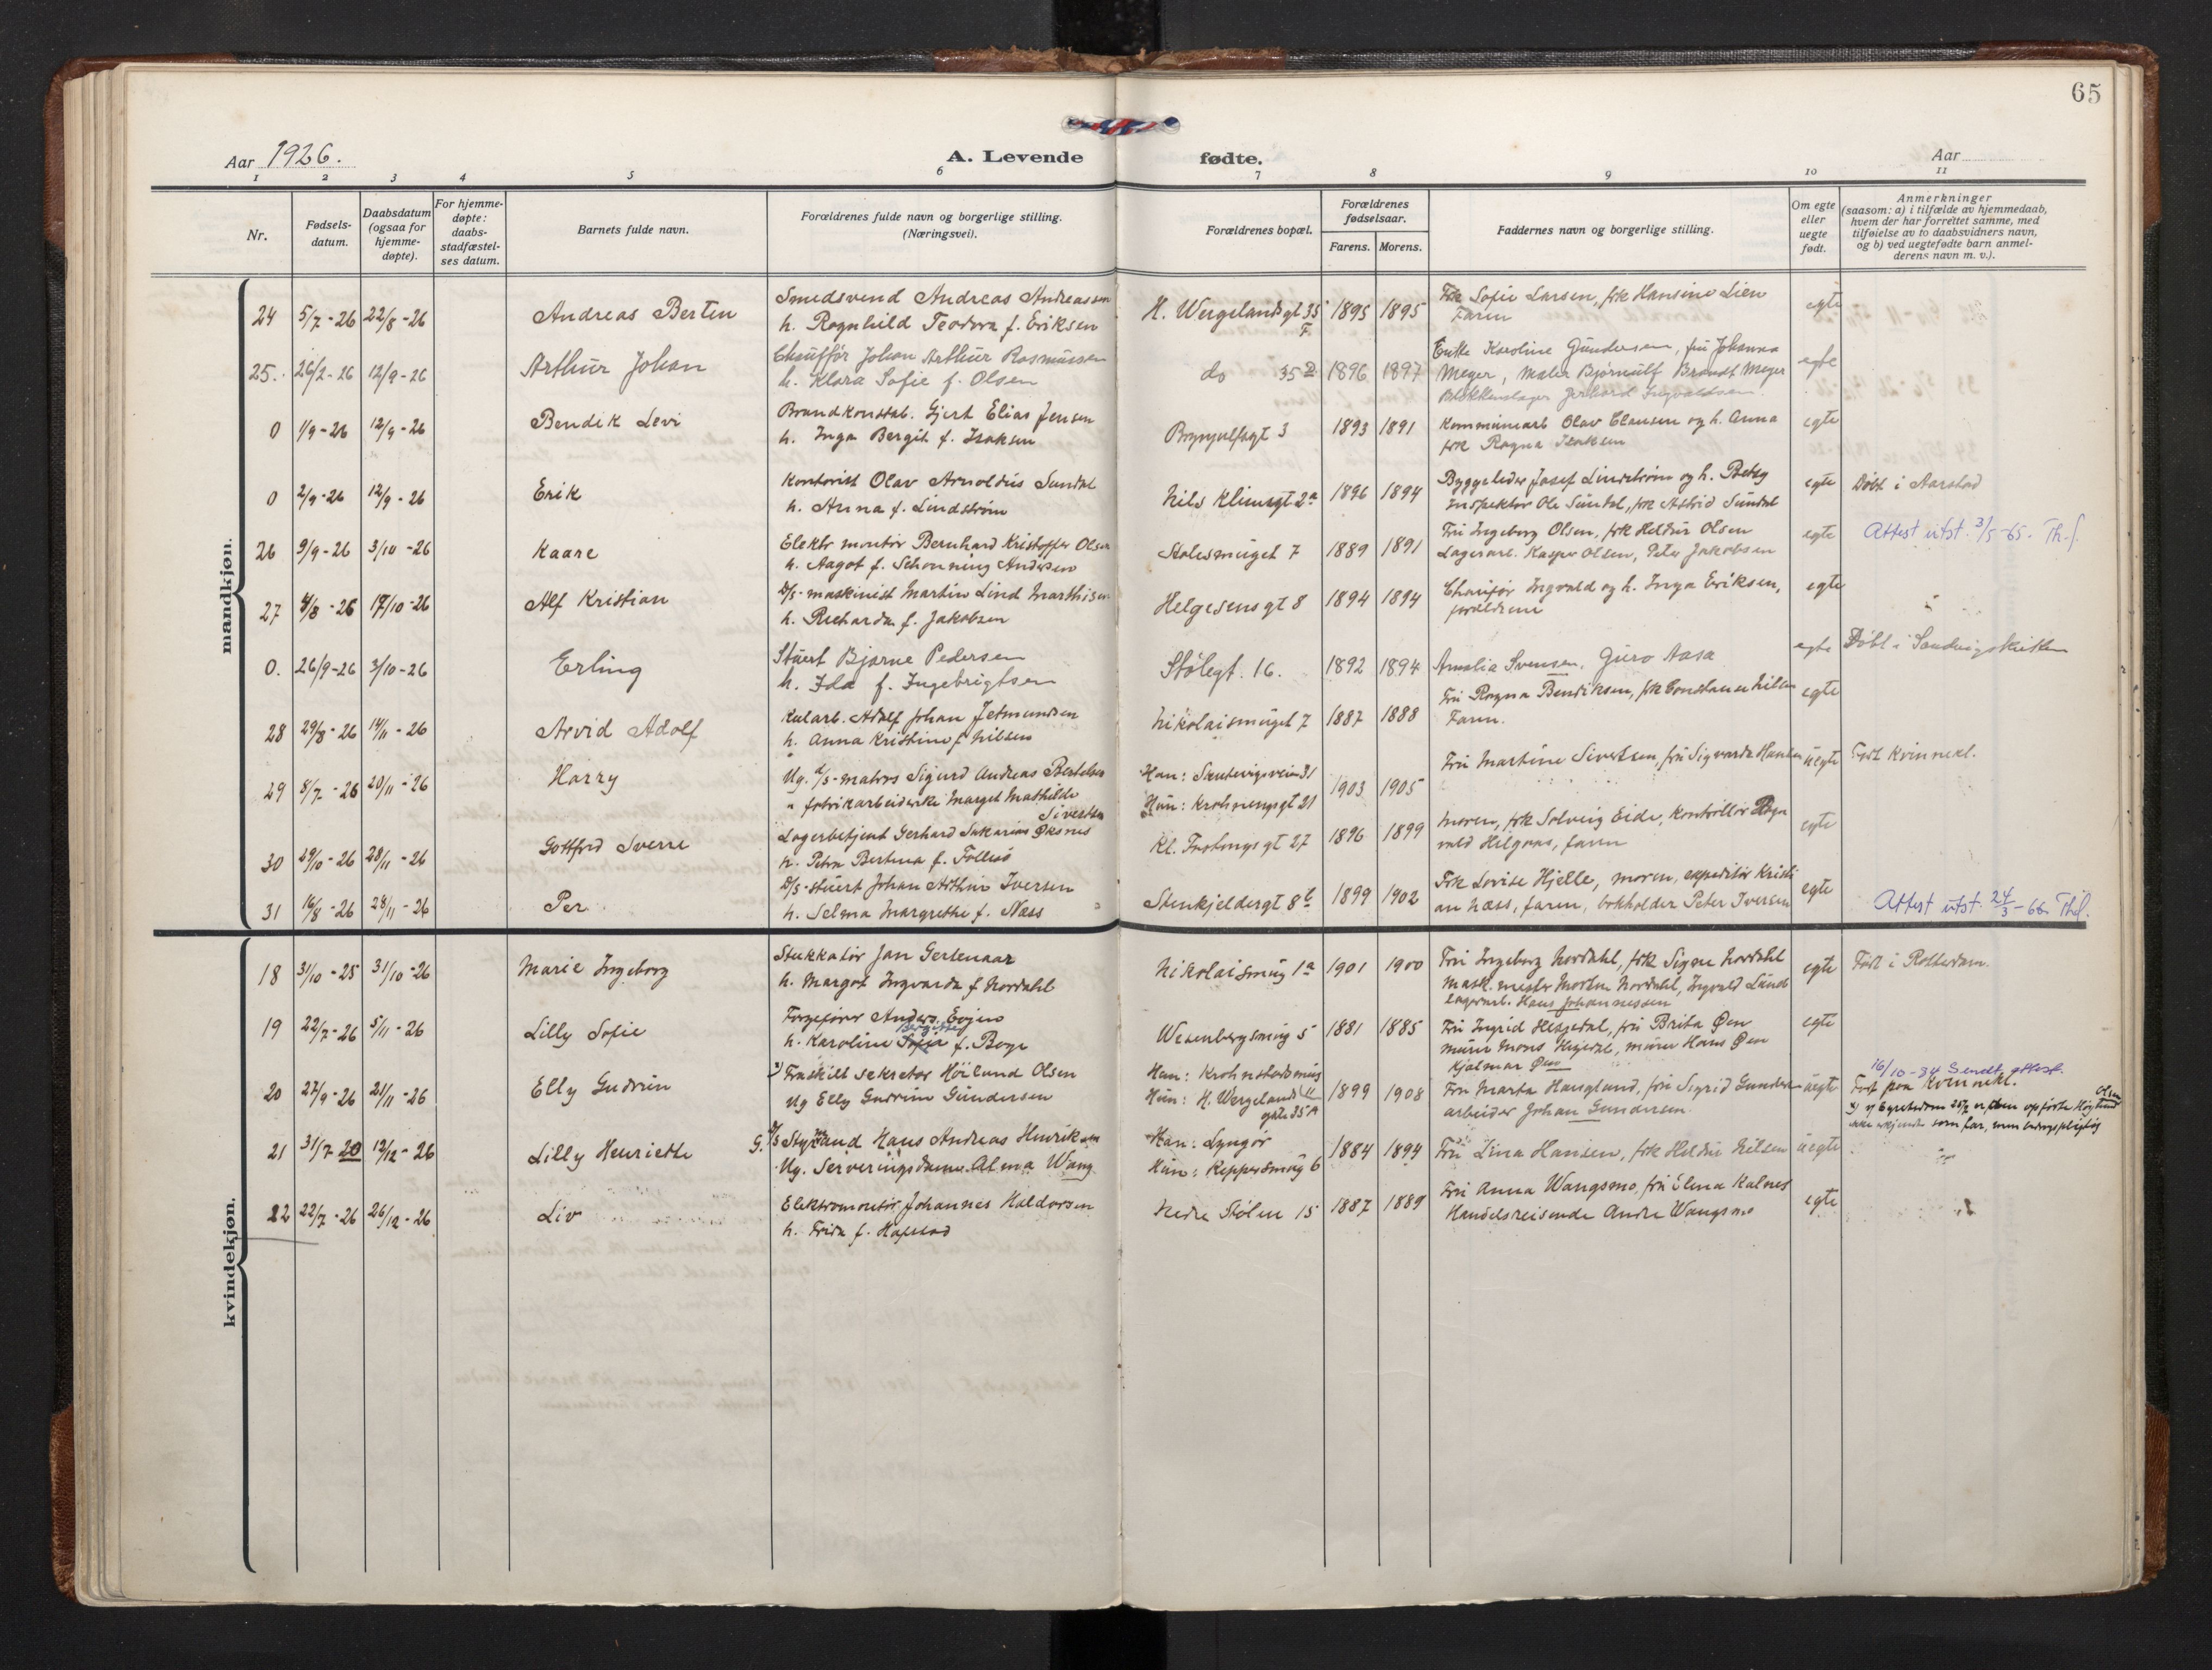 65
Aar 1926.
A. Levende
fødte.
Aar
1 2 3 4 5 6 7 8 9 10 11
Nr.
Fødsels-
datum.
Daabsdatum
(ogsaa for
hjemme-
døpte).
For hjemme-
døpte:
daabs-
stadfæstel-
ses datum.
Barnets fulde navn.
Forældrenes fulde navn og borgerlige stilling.
(Næringsvei).
Forældrenes bopæl.
Forældrenes
fødselsaar.
Farens. Morens.
Faddernes navn og borgerlige stilling.
Om egte
eller
uegte
født.
Anmerkninger
(saasom: a) i tilfælde av hjemmedaab,
hvem der har forrettet samme, med
tilføielse av to daabsvidners navn,
og b) ved uegtefødte barn anmel-
derens navn m. v.).
mandkjøn.
24 5/7-26 22/8-26 Andreas Berten
Smedsvend Andreas Andreassen
h. Ragnhild Teodora f. Eriksen
H. Wergelandsgt 35 F. 1895 1895
Frk Sofie Larsen, frk Hansine Lien
Faren
egte
25. 26/2-26 12/9-26 Arthur Johan
Chauffør Johan Arthur Rasmussen
h. Klara Sofie f. Olsen
do 35 D 1896 1897
Enke Karoline Gundersen, fru Johanna
Meyer, Maler Bjørnulf Brandt Meyer
Blikkenslager Gerhard Ingvaldsen
egte
0 1/9-26 12/9-26 Bendik Levi
Brandkonstab. Gjert Elias Jensen
h. Inga Bergit f. Isaksen
Brynjulfsgt 3 1893 1891
Kommunearb Olav Clausen og h. Anna
frk Ragna Isaksen
egte
0 2/9-26 12/9-26 Erik
Kontorist Olav Arnoldus Sundal
h. Anna f. Lindstrøm
Nils Klimsgt 2a 1896 1894
Byggeleder Josef Lindstrøm og h. Betsy
Inspektør Ole Sundal, frk Astrid Sundal
egte Døbt i Aarstad
26 9/9-26 3/10-26 Kaare
Elektr montør Bernhard Kristoffer Olsen
h. Aagot f. Schønning Andersen
Stølesmuget 7 1889 1891
Fru Ingeborg Olsen, frk Heldur Olsen
Lagerarb. Kasper Olsen, Peter Jakobsen
egte Attest utst. 3/5-65. Th.f.
27 4/8-26 17/10-26 Alf Kristian
D/s-maskinist Martin Lind Marthisen
h. Richarda f. Jakobsen
Helgesensgt 8 1894 1894
Chauffør Ingvald og h. Inga Eriksen,
forældrene
egte
0. 26/9-26 3/10-26 Erling
Stuert Bjarne Pedersen
h. Ida f. Ingebrigtsen
Stølegt. 16. 1892 1894
Amalia Svensen, Guro Aasa
egte Døbt i Sandvigskirken
28 29/8-26 14/11-26 Arvid Adolf
Kularb. Adolf Johan Jetmundsen
h. Anna Kristine f. Nilsen
Nikolaismuget 7 1887 1888
Fru Ragna Bendiksen, frk Constanse Nilsen
Faren.
egte
29 8/7-26 20/11-26 Harry
Ug. d/s-matros Sigurd Andreas Bertelsen
" fabrikarbeiderske Marget Mathilde
Sivertsen
Han: Sandvigsveien 31
Hun: Krohnengsgt 21
1903 1905
Fru Martine Sivertsen, fru Sigvarda Hansen
uegte Født Kvinnekl.
30 29/10-26 28/11-26 Gottfred Sverre
Lagerbetjent Gerhard Sakarias Øksnes
h. Petra Bertina f. Follesø
Kl. Frostungsgt 27 1896 1899
Moren, frk Solveig Eide, kontrollør Ragn
vald Helgaas, faren
egte
31 16/8-26 28/11-26 Per
D/s-stuert Johan Arthur Iversen
h. Selma Margrethe f. Næss
Stenkjeldergt 8b 1899 1902
Frk Lovise Hjelle, moren, expeditør Kristi
an Næss, faren, bokholder Peter Iversen
egte Attest utst. 24/3-66 Thf.
kvindekjøn.
18 31/10-25 31/10-26 Marie Ingeborg
Stukkatør Jan Gertenaar
h. Margot Ingvarda f. Nordahl
Nikolaismug 1a 1901 1900
Fru Ingeborg Nordahl, frk Signe Nordahl
Mask. mester Morten Nordahl, Ingvald Lund
Lagerarb. Hans Johannessen
egte Født i Rotterdam.
19 22/7-26 5/11-26 Lilly Sofie
Anders Evjen
h. Karoline Bergitte f. Boge
Wesenbergsmug 5 1881 1885
Fru Ingrid Hesjedal, fru Brita Øen
murer Mons Hesjedal, murer Hans Øen
Hjalmar Øen
egte
20 27/9-26 21/11-26 Elly Gudrun
x) Fraskilt sekretær Höilund Olsen
Ug Elly Gudrun Gundersen
Han: Krohnstadsmug 11
Hun: H. Wergelands
gate 35A
1899 1908
Fru Marta Haugland, fru Sigrid Gundersen
arbeider Johan Gundersen.
uegte
16/10-34 Sendt attest.
Født paa Kvinnekl.
som far, men bidragspligtig
21 31/7 20 12/12-26 Lilly Henriette
G. d/s Styrmand Hans Andreas Henriksen
Ug. Serveringsdame Alma Wang
Han: Lyngør
Hun: Reppersmug 6
1884 1894
Fru Lina Hansen, frk Heldur Nilsen
uegte
22 22/7-26 26/12-26 Liv
Elektromontør Johannes Haldorsen
h. Frida f. Hafstad
Nedre Stølen 15 1887 1889
Fru Anna Wangsmo, fru Elena Kalnes
Handelsreisende Andre Wangsmo
egte